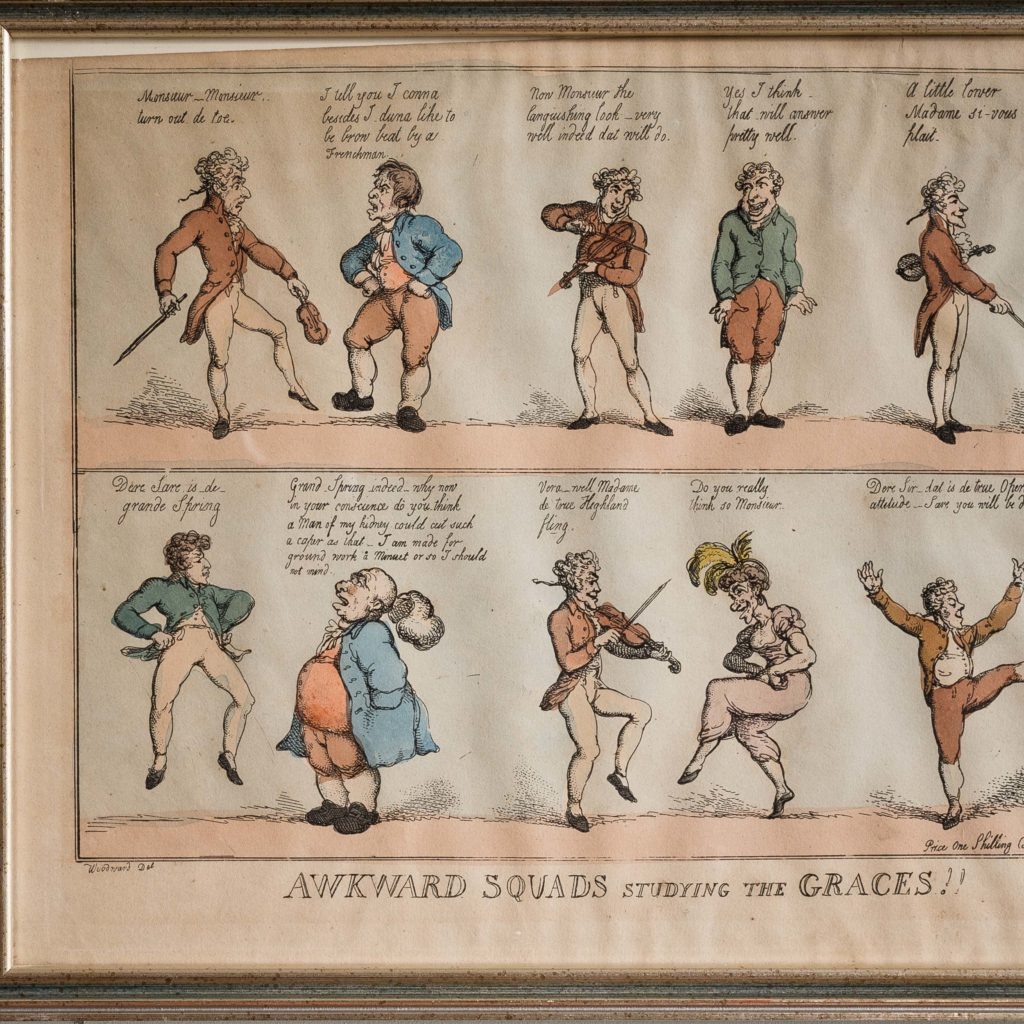 Monsieur – Monsieur..
turn out de toe.
I tell you I conna
besides I duna like to
be brow beat by a
Frenchman.
Now Monsieur the
languishing look – very
well indeed dat will do.
Yes I think –
that will answer
pretty well.
A little lower
Madame si-vous
plait.
Dere Sare is de –
grande Spring
Grand Spring indeed – why now
in your conscience do you think
a Man of my kidney could cut such
a caper as that – I am made for
ground work a Minuet or so I should
not mind.
Vera – well Madame
de true Heghland
fling.
Do you really
think so Monsieur.
Dere Sir – dat is de true Oper
attitude – Sare you will be d
Price One Shilling
Woodward Del
AWKWARD SQUADS STUDYING THE GRACES!!